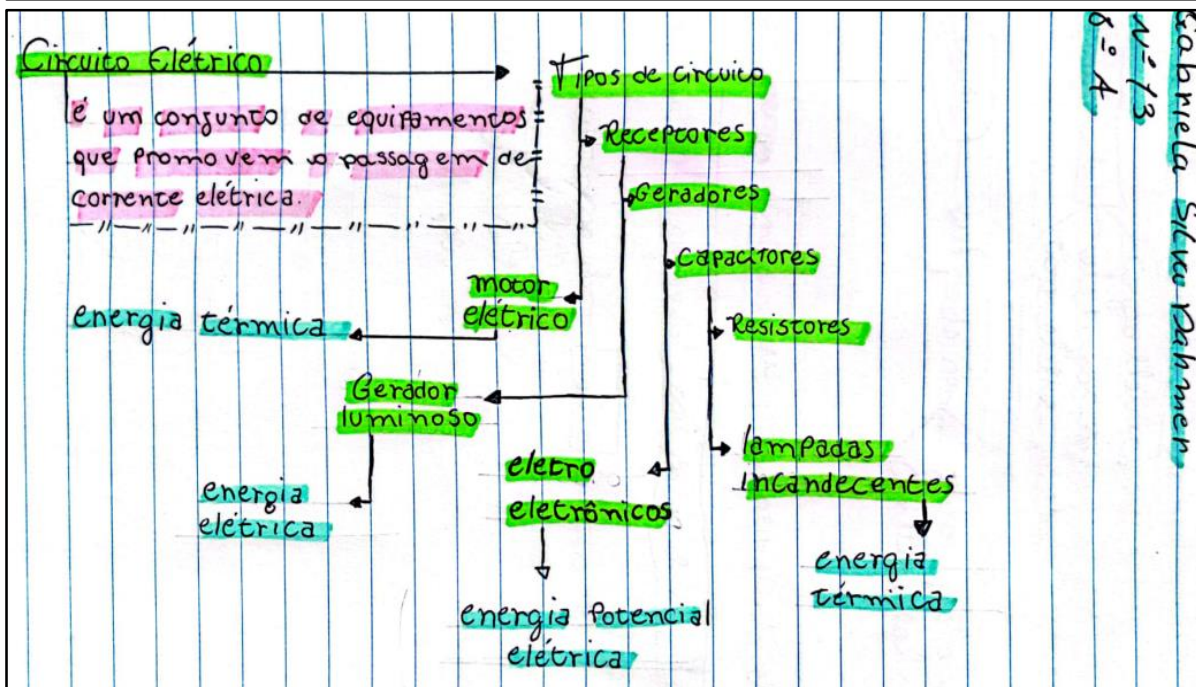 Circuito Elétrico
é um conjunto de equipamentos
que promovem a passagem de
corrente elétrica.
Tipos de circuito
Receptores
Geradores
Capacitores
Resistores
motor
elétrico
energia térmica
Gerador
luminoso
energia
elétrica
eletro
eletrônicos
energia Potencial
elétrica
lampadas
Incandecentes
energia
térmica
Gabriela Silva Dahmen
Nº 13
8º A